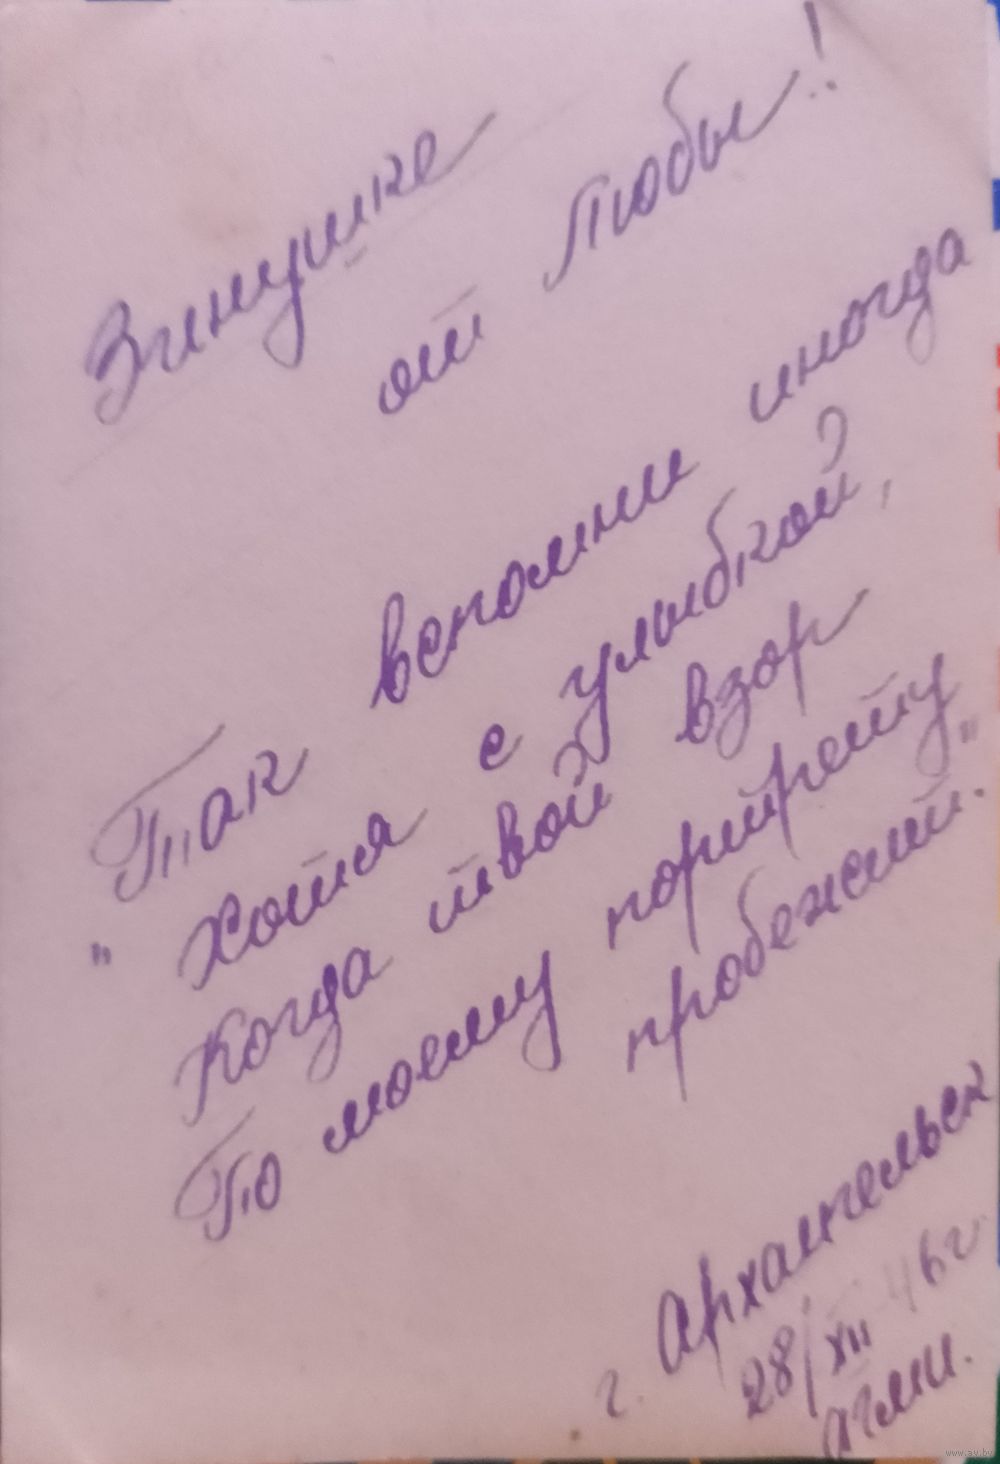 Зинушке
от Любы!
Так вспомни иногда
"Хотя с улыбкой,
Когда твой взор
По моему портрету"
пробежит.
г. Архангельск
28/XII 46 г
АГМИ.
www.av.by